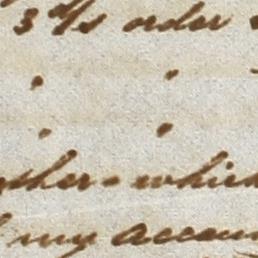 3 d/s order
. .
. .
ther - which
my accoun